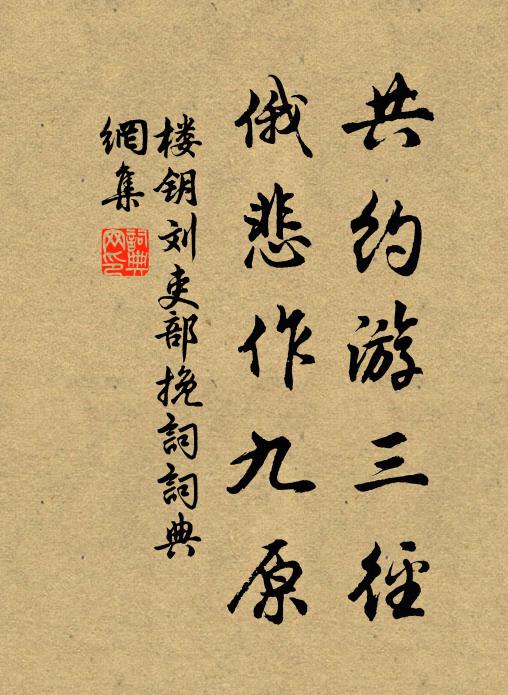 共约游三径
俄悲作九原
楼钥刘吏部挽词詞典
網集
詞典
网印